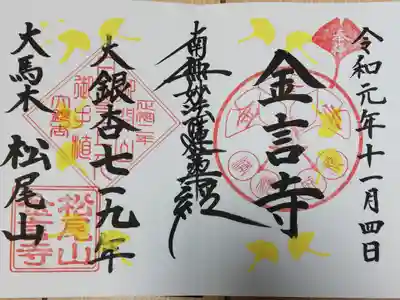 奉拝
令和元年十一月四日
金言寺
南無妙法蓮華経
大銀杏七一九年
大馬木 松尾山
松尾山
金言寺